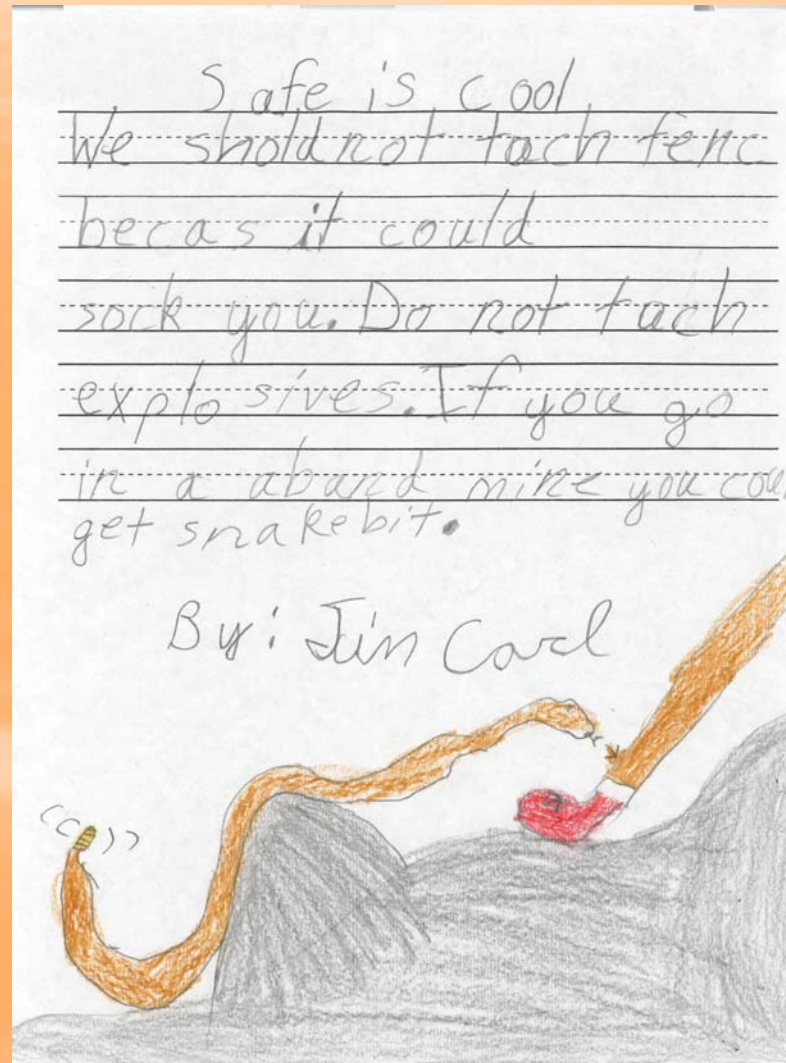 Safe is cool
We shold not tach fenc
becas it could
sock you. Do not tach
explo sives. If you go
in a aband mine you cou
get snakebit.
By: Jim Carl